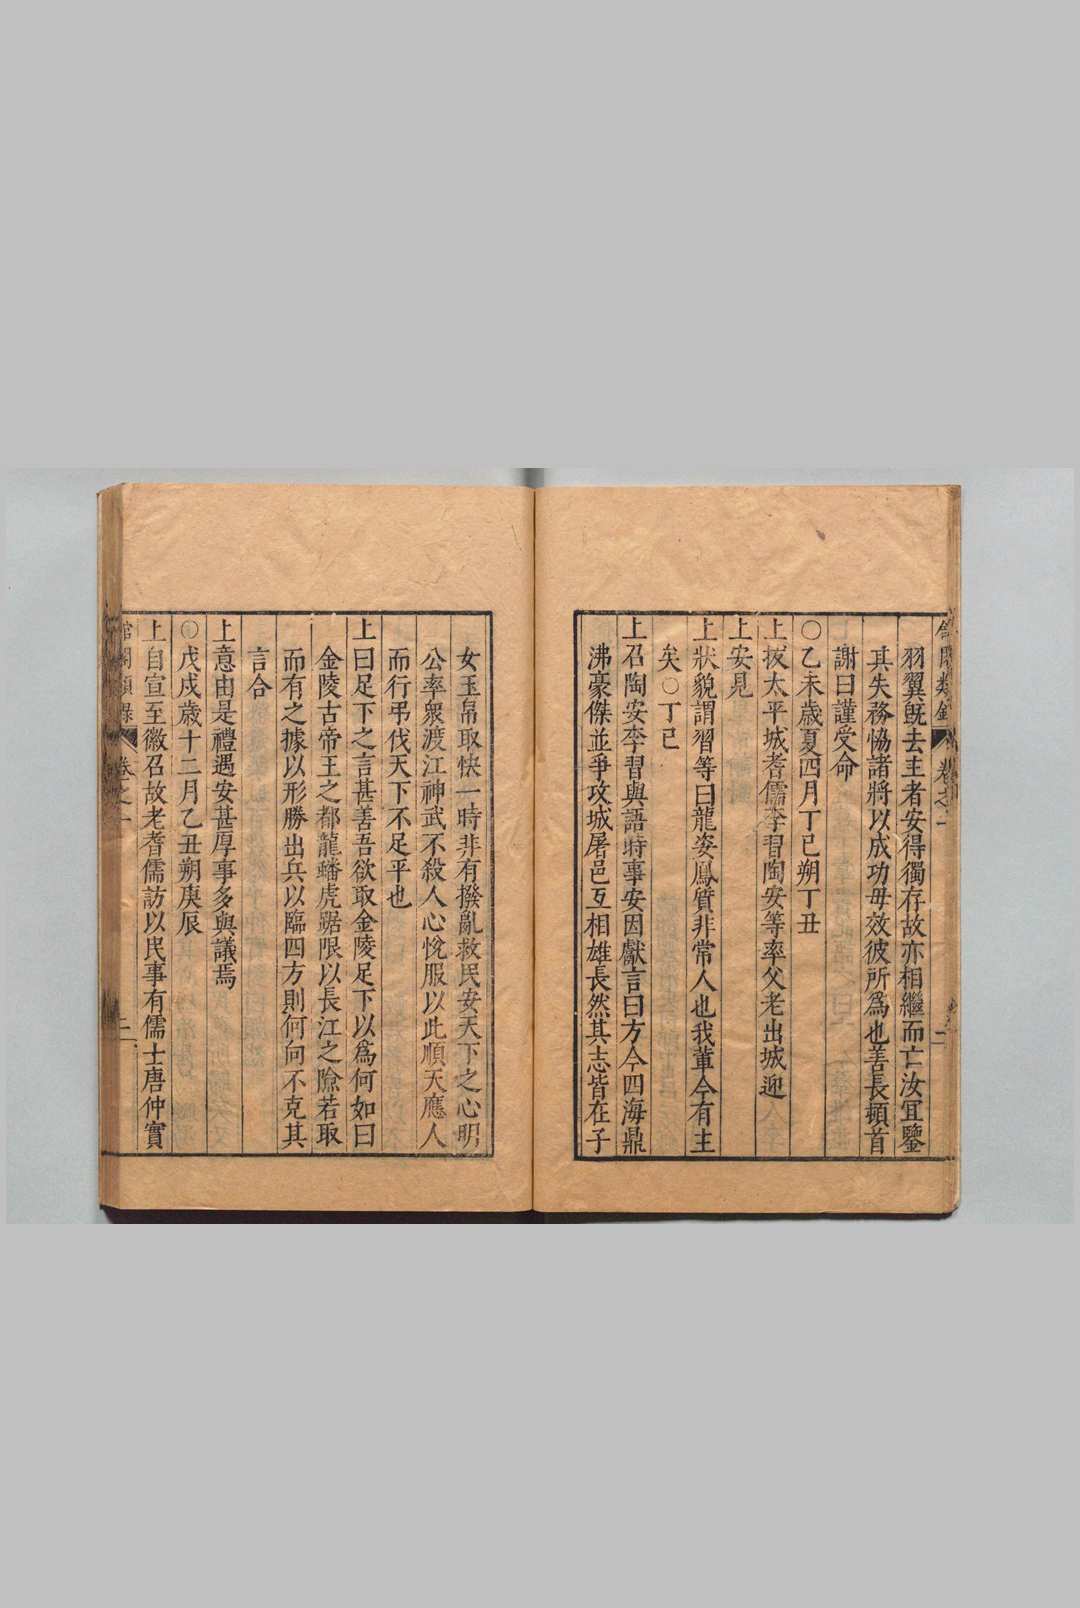 館閣類錄 卷之一 二
羽翼旣去主者安得獨存故亦相繼而亡汝冝鑒
其失務恊諸將以成功毋效彼所爲也善長頓首
謝曰謹受命
〇乙未歲夏四月丁巳朔丁丑
上拔太平城耆儒李習陶安等率父老出城迎
上安見
上狀貌謂習等曰龍姿鳳質非常人也我輩今有主
矣〇丁巳
上召陶安李習與語時事安因獻言曰方今四海鼎
沸豪傑並爭攻城屠邑互相雄長然其志皆在子
女玉帛取快一時非有撥亂救民安天下之心明
公率衆渡江神武不殺人心悅服以此順天應人
而行弔伐天下不足平也
上曰足下之言甚善吾欲取金陵足下以爲何如曰
金陵古帝王之都龍蟠虎踞限以長江之險若取
而有之據以形勝出兵以臨四方則何向不克其
言合
上意由是禮遇安甚厚事多與議焉
〇戊戌歲十二月乙丑朔庚辰
上自宣至徽召故老耆儒訪以民事有儒士唐仲實
館閣類錄 卷之一 二